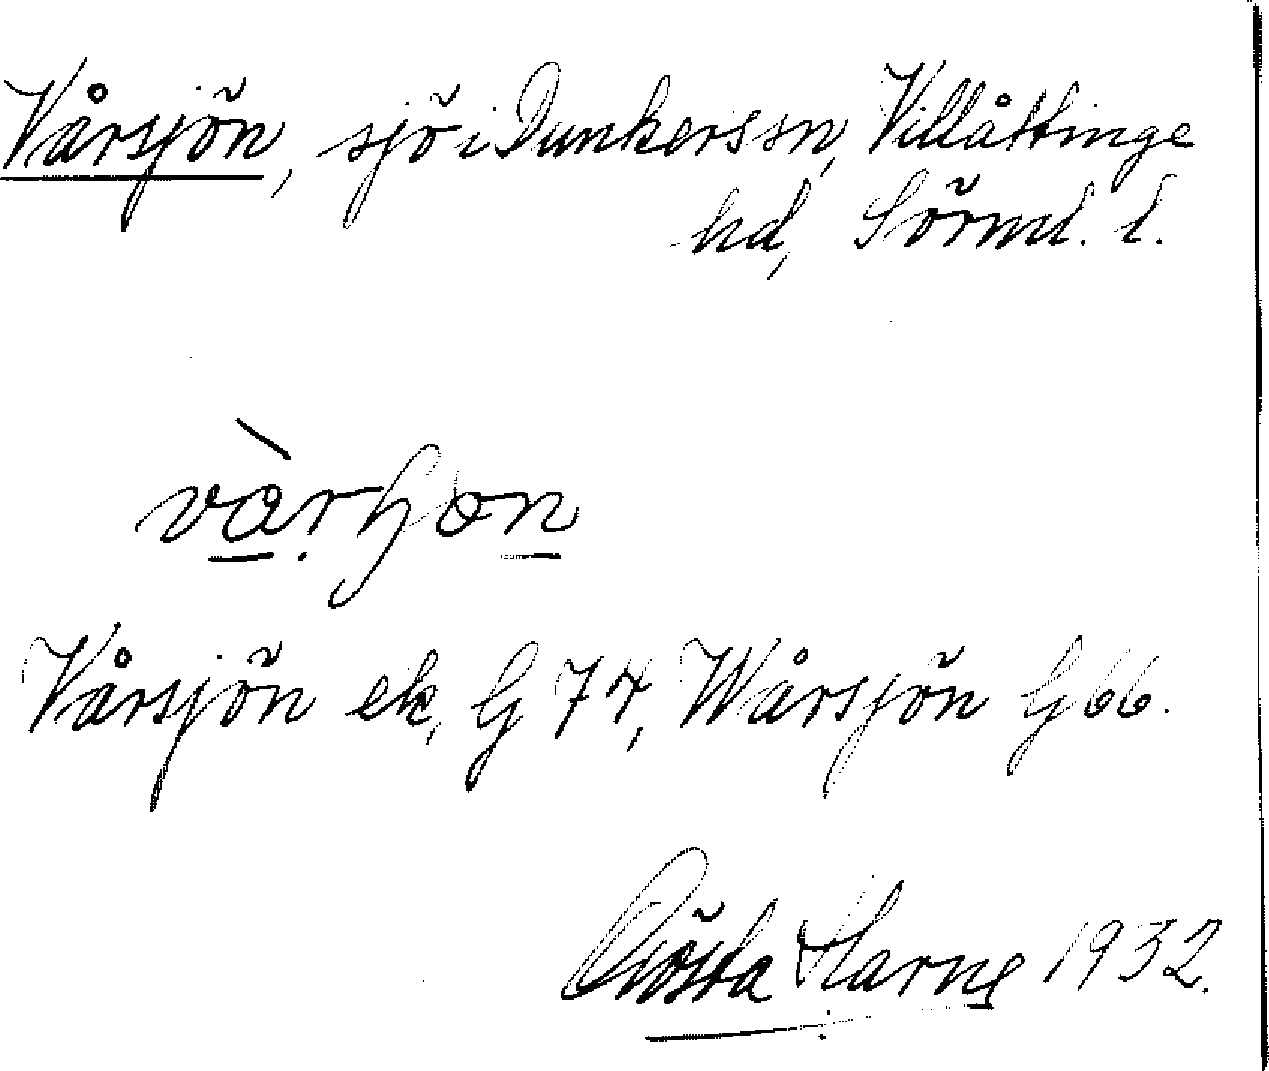 Vårsjön, sjö i Dunkers sn, Villåttinge
hd, Sörml. l.
Vårsjön ek, G 74, Wårsjön G 66.
Gösta Harne 1932.